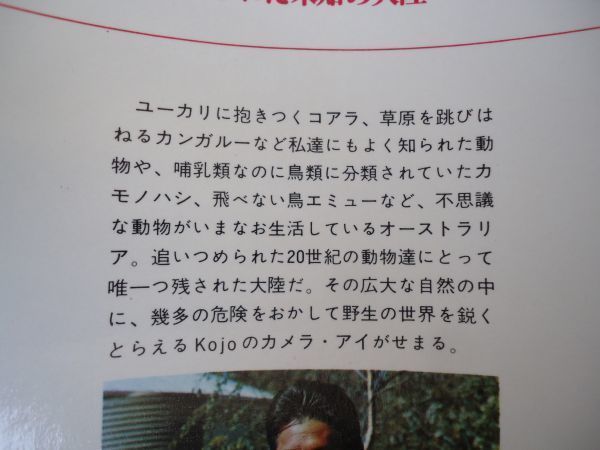 ユーカリに抱きつくコアラ、草原を跳びは
ねるカンガルーなど私達にもよく知られた動
物や、哺乳類なのに鳥類に分類されていたカ
モノハシ、飛べない鳥エミューなど、不思議
な動物がいまなお生活しているオーストラリ
ア。追いつめられた20世紀の動物達にとって
唯一つ残された大陸だ。その広大な自然の中
に、幾多の危険をおかして野生の世界を鋭く
とらえるKojoのカメラ・アイがせまる。